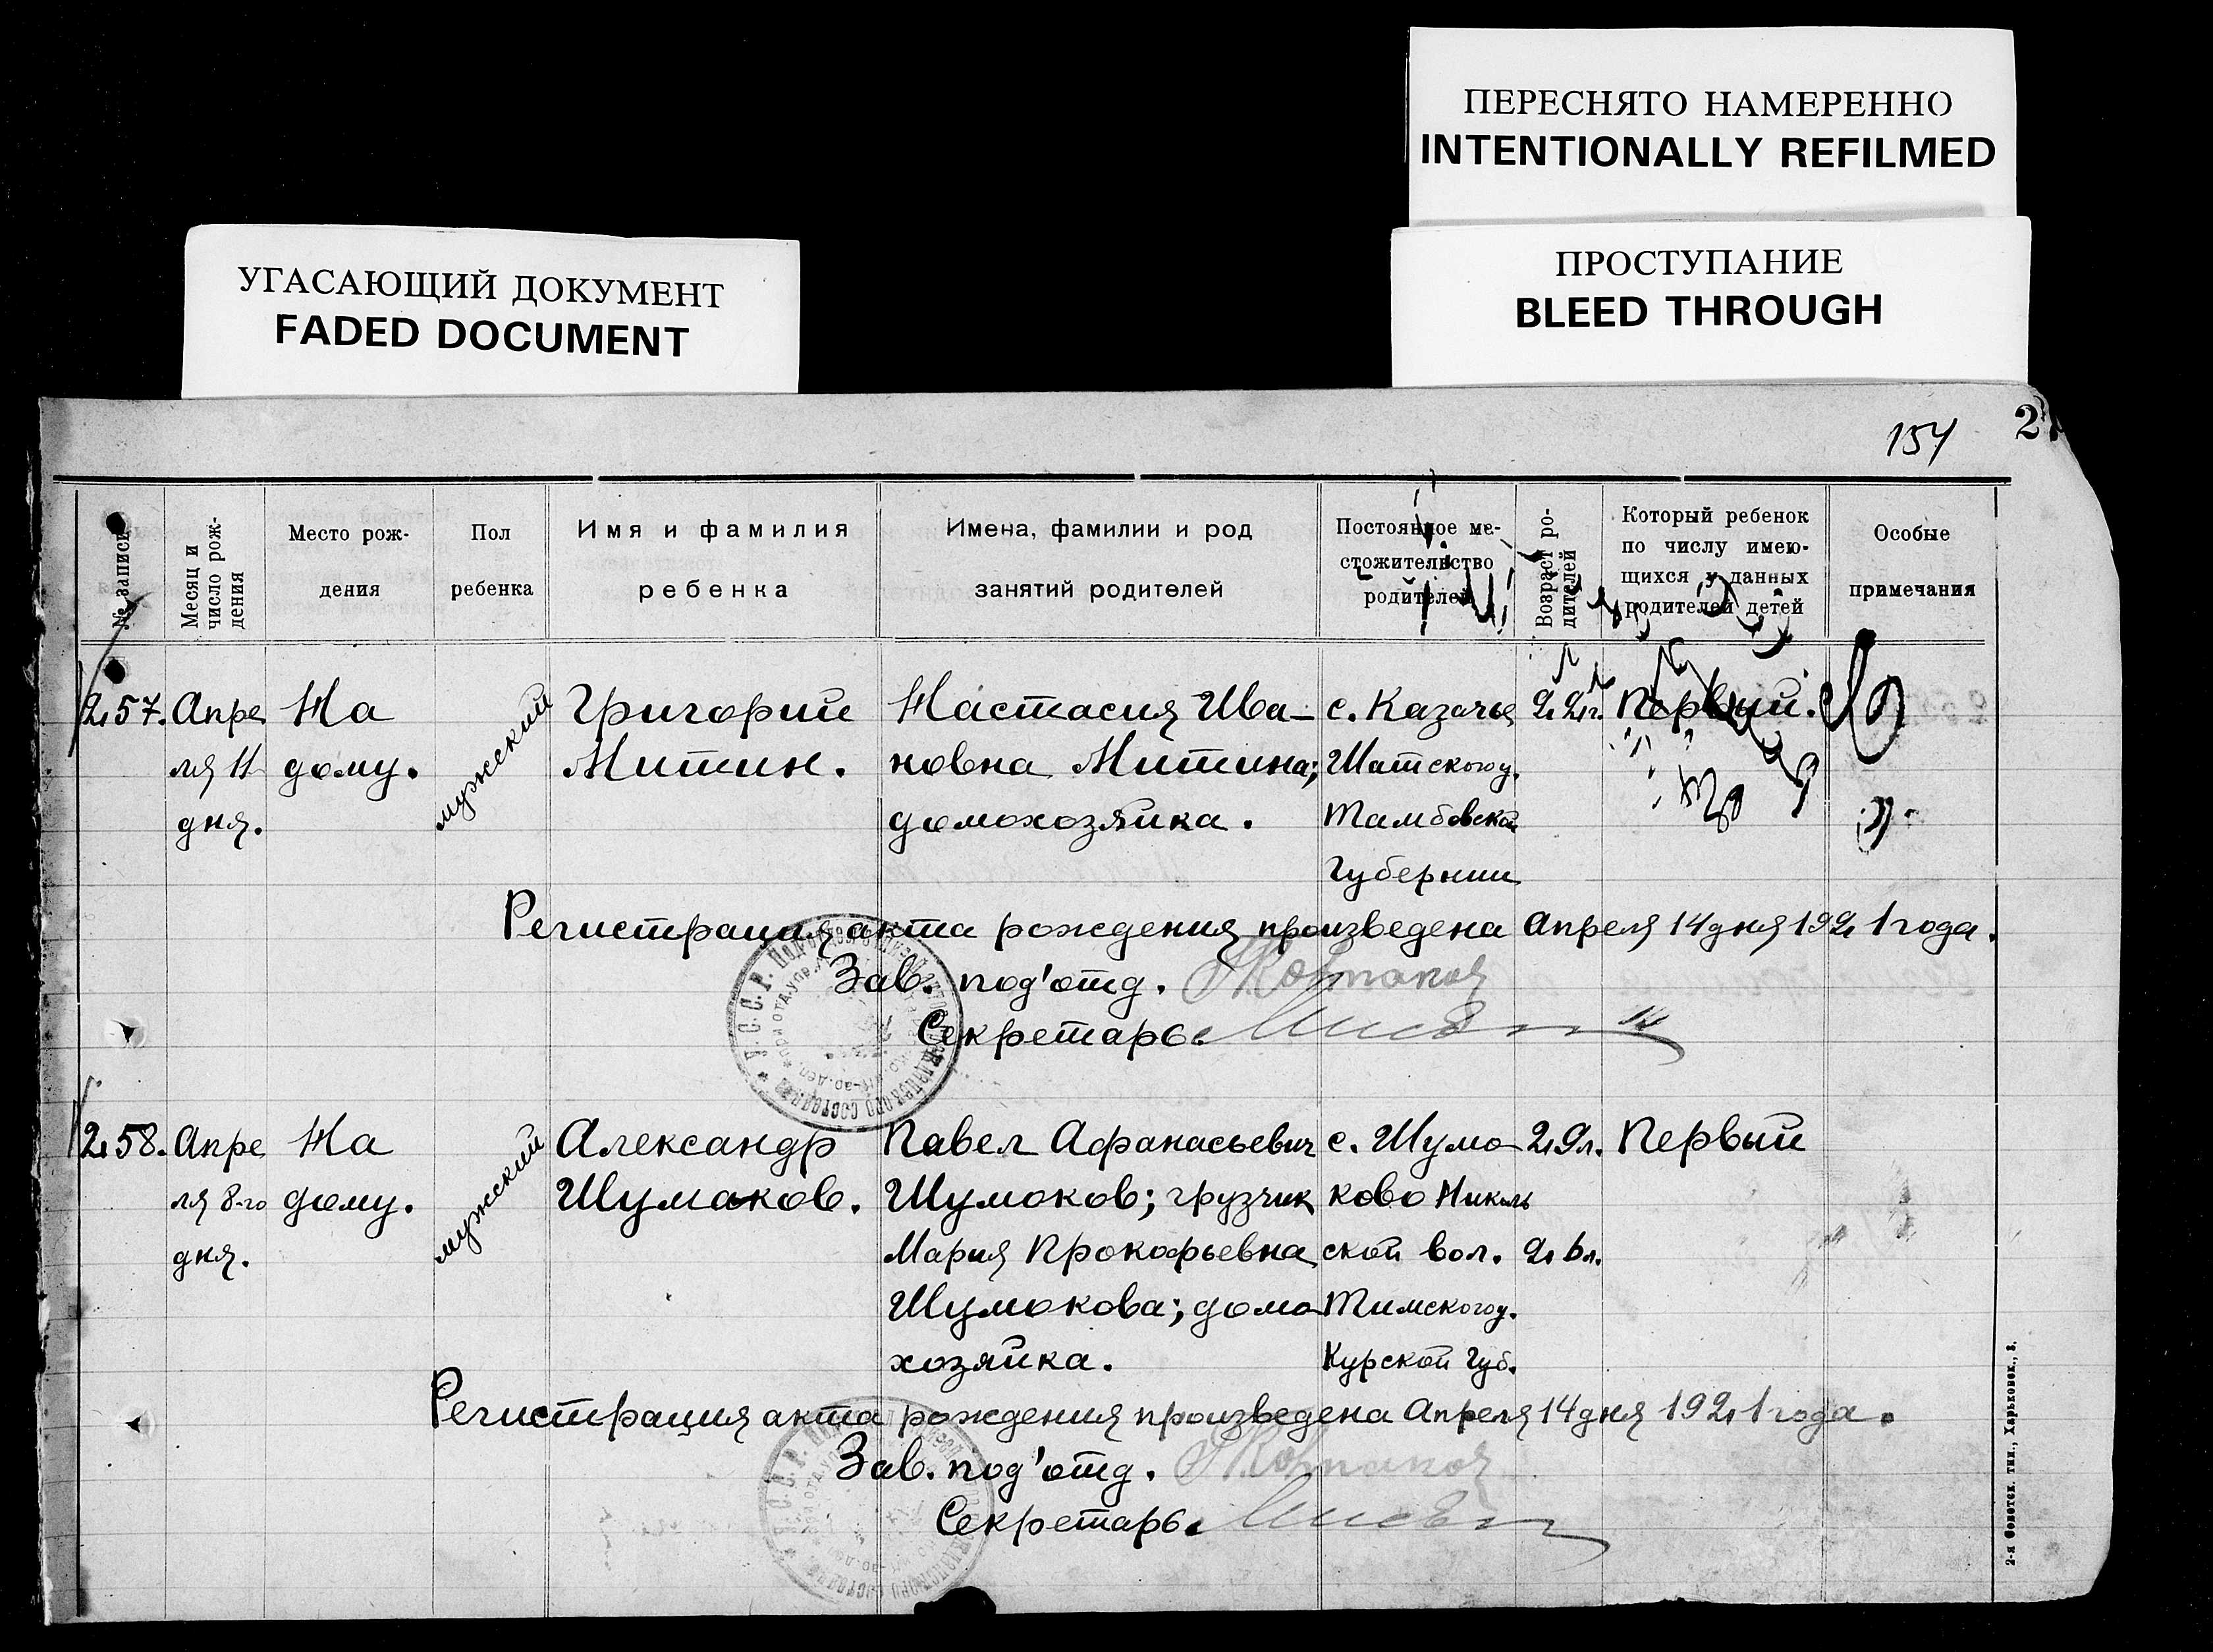 ПЕРЕСНЯТО НАМЕРЕННО
INTENTIONALLY REFILMED
ПРОСТУПАНИЕ
BLEED THROUGH
УГАСАЮЩИЙ ДОКУМЕНТ
FADED DOCUMENT
154
2
№ записи
Месяц и
число рож-
дения
Место рож-
дения
Пол
ребенка
Имя и фамилия
ребенка
Имена, фамилии и род
занятий родителей
Постоянное ме-
стожительство
родителей
Возраст ро-
дителей
Который ребенок
по числу имею-
щихся у данных
родителей детей
Особые
примечания
257.
Апре
ля 11
дня.
На
дому.
мужский
Григорий
Митин.
Настасия Ива-
новна Митина;
домохозяйка.
с. Казачье
Шатского у.
Тамбовской
Губернии
22 г.
Первый.
Регистрация акта рождения произведена Апреля 14 дня 1921 года.
Зав. под'отд.
Секретарь.
258.
Апре
ля 8-го
дня.
На
дому.
мужский
Александр
Шумаков.
Павел Афанасьевич
Шумоков; грузчик
Мария Прокофьевна
Шумокова; домо
хозяйка.
с. Шумо
ково Николь
ской вол.
Тимского у.
Курской Губ.
29 л.
26 л.
Первый
Регистрация акта рождения произведена Апреля 14 дня 1921 года.
Зав. под'отд.
Секретарь.
2-я Советск. тип., Харьковск., 3.